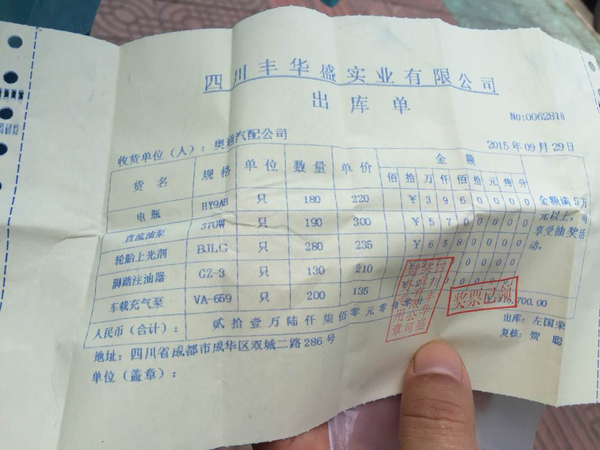 四川丰华盛实业有限公司
出库单
No:0062818
收货单位（人）：奥通汽配公司
2015年09月29日
货名 规格 单位 数量 单价 金额
佰 拾 万 仟 佰 拾 元 角 分
电瓶 HY9AB 只 180 220 ¥ 3 9 6 0 0 0 0
直流油泵 370W 只 190 300 ¥ 5 7 0 0 0 0 0
轮胎上光剂 BJLG 只 280 235 ¥ 6 5 8 0 0
脚踏注油器 GZ-3 只 130 210
车载充气泵 VA-659 只 200 135
金额满5万元以上，可享受抽奖活动。
人民币（合计）： 贰拾壹万陆仟柒佰零元零 700.00
奖票
地址：四川省成都市成华区双城二路286号
出库：左国荣
复核：贺聪
单位（盖章）：